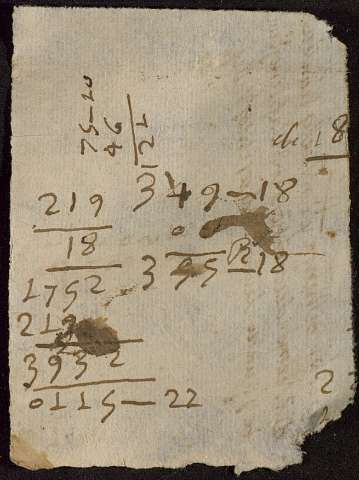 75—20
46
121
ch 18
349—18
0
355 — 18
219
18
1752
219
3932
0115—22
2